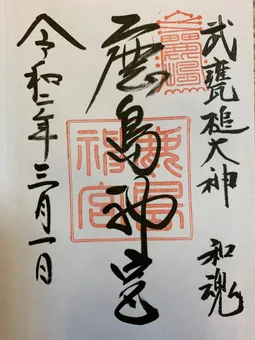 武甕槌大神 和魂
鹿島神宮
鹿島神宮
令和二年三月一日